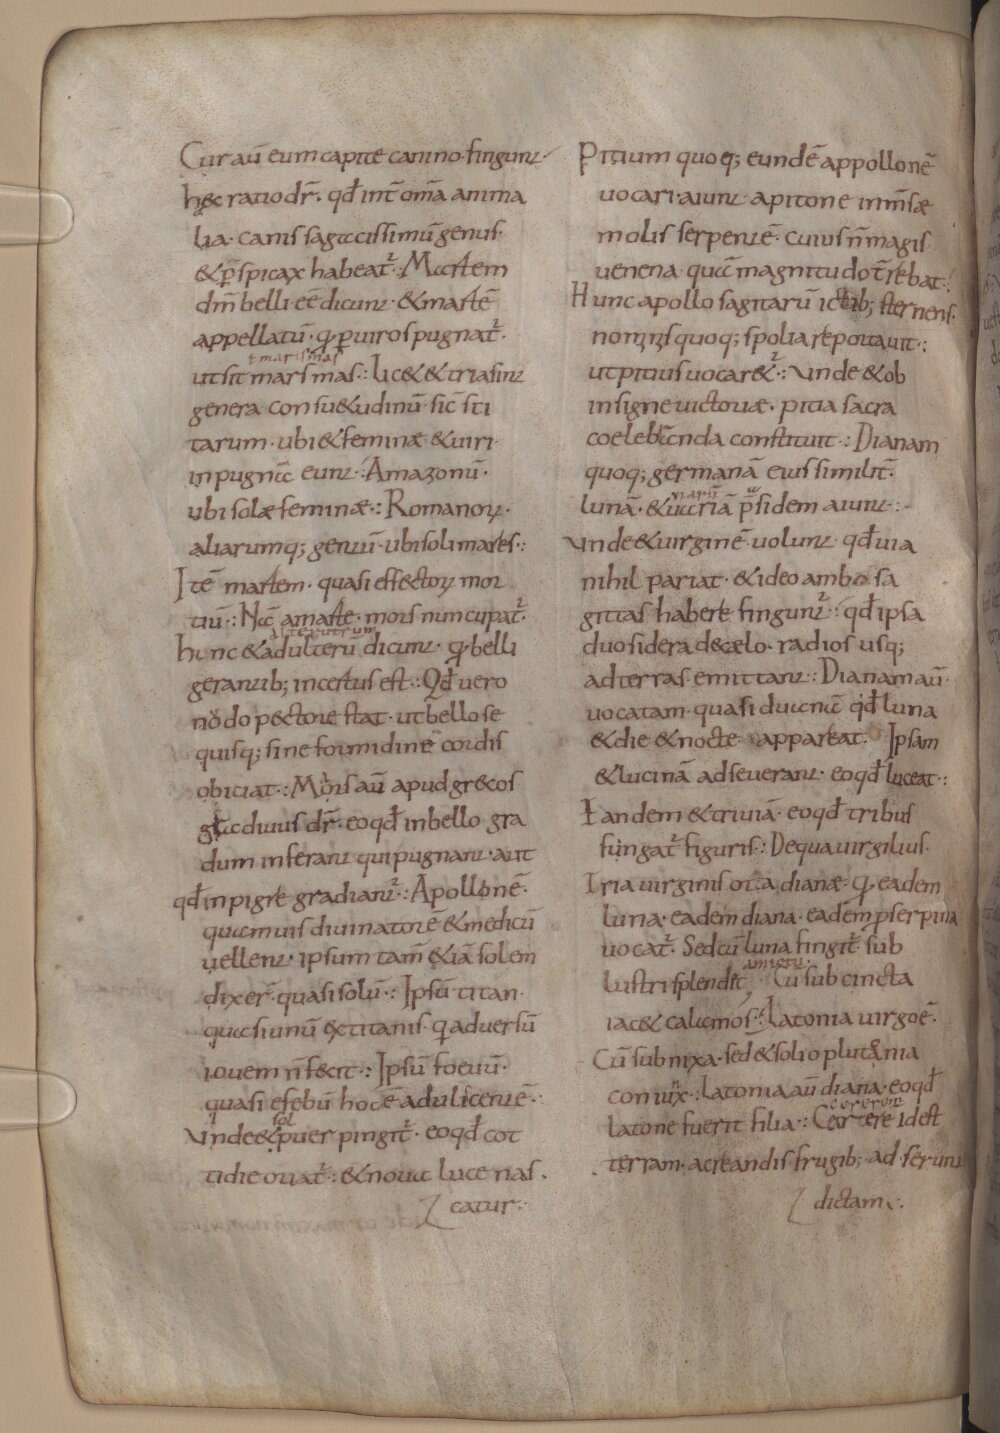 Cur aū eum capite canino fingunt·
hęc ratio dr̄· qđ int̄ om̄a anima
lia· canis sagacissimū genus·
& p̄spicax habeat᷑· Martem
dm̄ belli eē dicunt· & martē
appellatū· ꝙ ꝑ uiros pugnat᷑·
ł maris mas
ut sit mars mas·: lic& & tria sint
genera consu&udinū· sic̄ sci
tarum· ubi & feminæ & uiri·
in pugnā eunt·: Amazonū·
ubi solæ feminæ·: Romanoꝝ·
aliarumq; gentiū· ubi soli mares·:
Itē martem· quasi effectoꝝ mor
tiū·: Nā a marte· mors nuncupat᷑·
alterutrum
hunc & adulterū dicunt· ꝙ belli
gerantib; incertus est·: Qđ uero
nudo pectore stat· ut bello se
quisq; sine formidine cordis
obiciat·: Mors aū apud grecos
gradiuus dr̄· eo qđ in bello gra
dum inferant qui pugnant· aut
qđ inpigre gradiant᷑·: Apollonē·
quamuis diuinatorē & medicū
uellent· ipsum tam̄ &iā solem
dixer̄· quasi solū·: Ipsū titan·
quasi unū ex titanis· q aduersū
iouem n̄ fecit·: Ipsū foebū·
quasi efebū hoc ē adulescentē·:
sol
Unde & puer pingit᷑· eo qđ cot
tidie oriat᷑·: & noua luce nas·
catur·
Pitium quoq; eundē appollonē
uocari· aiunt a pitone inm̄sæ
molis serpentē· cuius n̄ magis
uenena quā magnitudo t̄rebat·:
Hunc apollo sagitarū ictib; sternens·
nominis quoq; spolia reportauit·:
ut pitius uocar&᷑·: Unde & ob
insigne uictoriæ· pitia sacra
coelebranda constituit·: Dianam
quoq; germanā eius similit̄·
lunā· & uiarū p̄sidem aiunt·:
Unde & uirginē uolunt· qđ uia
nihil pariat· & ideo ambo sa
gittas habere fingunt᷑·: qđ ipsa
duo sidera de cælo· radios usq;
ad terras emittant·: Dianam aū
uocatam· quasi duana· qđ luna
& die & nocte appareat· Ipsam
& lucinā adseuerant· eo qđ luceat·:
Eandem & triuiā· eo qđ tribus
fungat᷑ figuris·: De qua uirgilius·
Tria uirginis ora dianæ· ꝙ eadem
luna· eadem diana· eadem ꝓserpina
uocat᷑· Sed cū luna fingit᷑ sub
amictu·
lustri splendet Cū subcincta
iac& calamos·: Latonia uirgo ē·
Cū subnixa· sed & solio plutonia
coniunx·: Latonia aū diana· eo qđ
cererem
latone fuerit filia·: Cerere id est
terram· a creandis frugib; adserunt
dictam·: